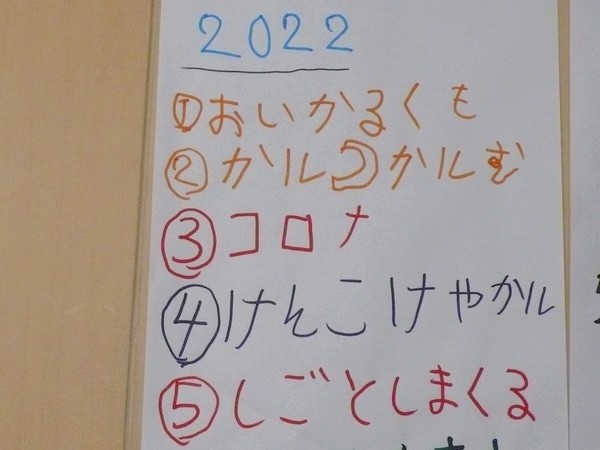 2022
①おいかるくも
②かルつかルむ
③コロナ
④けんこけやかル
⑤しごとしまくる